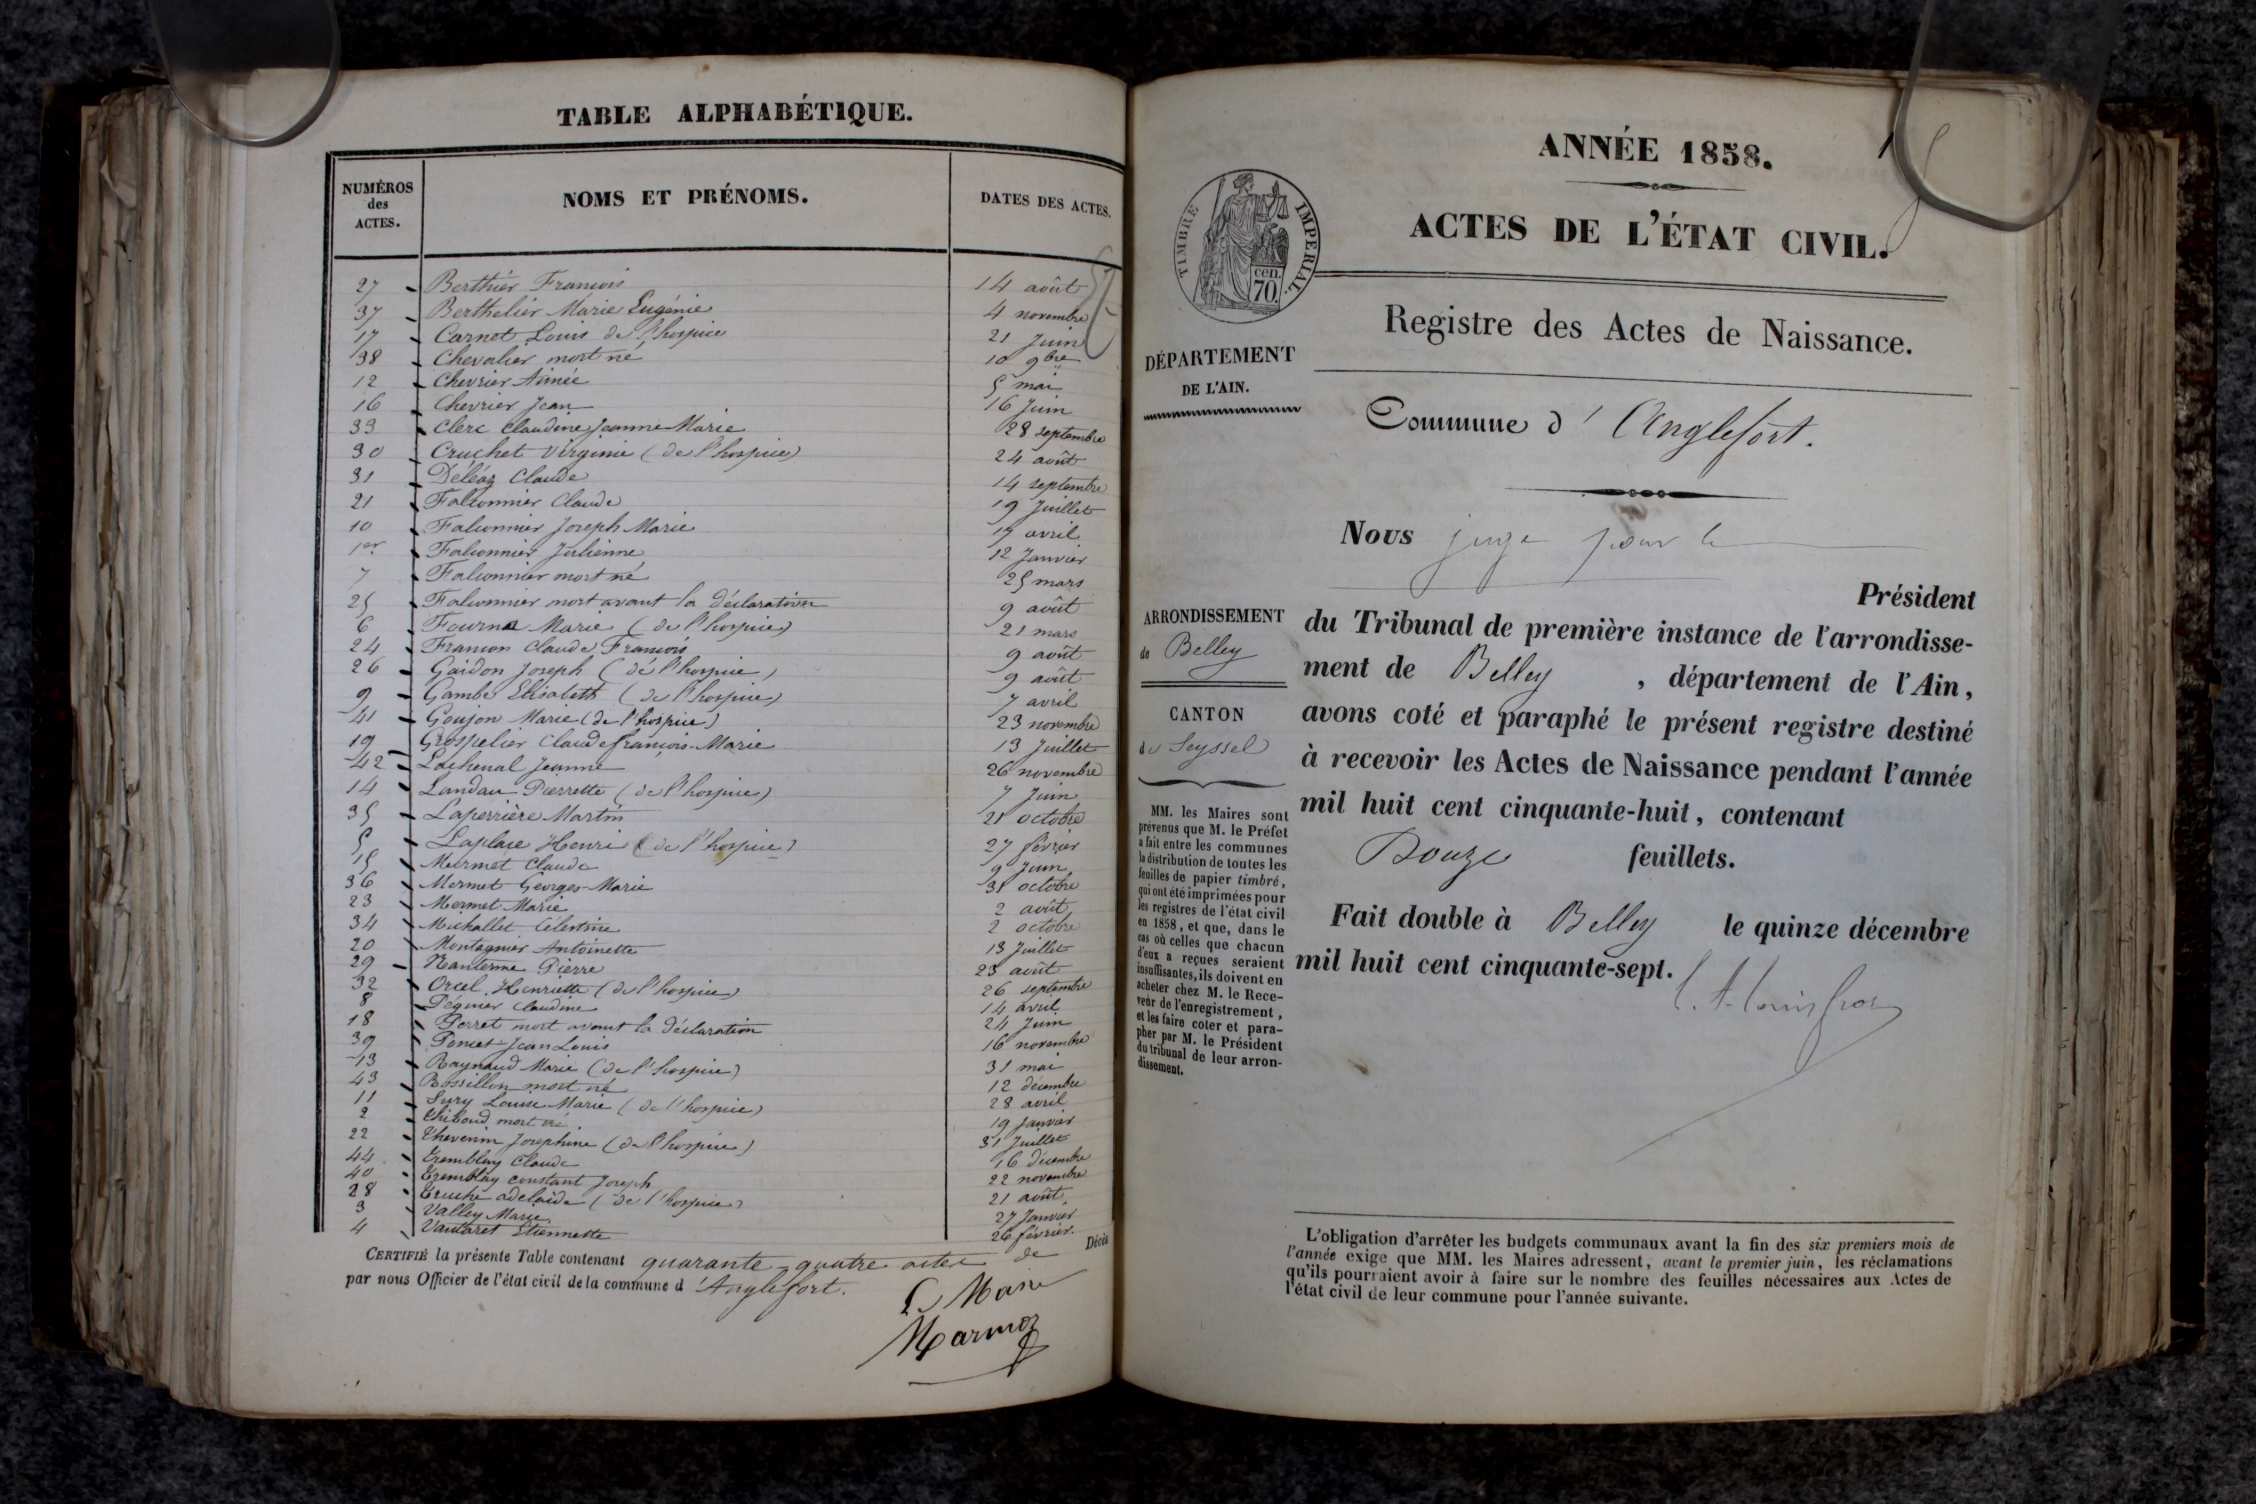 TABLE ALPHABÉTIQUE.
NUMÉROS des ACTES. NOMS ET PRÉNOMS. DATES DES ACTES.
27 Berthier François 14 août
37 Berthelier Marie Eugénie 4 novembre
17 Carnot Louis de l'hospice 21 Juin
38 Chevalier mort né 10 9bre
12 Chevrier Aimée 5 mai
16 Chevrier Jean 16 Juin
33 Clerc Claudine Jeanne-Marie 28 septembre
30 Cruchet Virginie (de l'hospice) 24 août
31 Déléaz Claude 14 septembre
21 Falconnier Claude 19 Juillet
10 Falconnier Joseph Marie 17 avril
1er Falconnier Julienne 12 Janvier
7 Falconnier mort né 25 mars
25 Falconnier mort avant la déclaration 9 août
6 Fournel Marie (de l'hospice) 21 mars
24 Françon Claude François 9 août
26 Gaidon Joseph (de l'hospice) 9 août
9 Gambe Elisabeth (de l'hospice) 7 avril
41 Goujon Marie (de l'hospice) 23 novembre
19 Grospelier Claude françois-Marie 13 Juillet
42 Lachenal Jeanne 26 novembre
14 Landau Pierrette (de l'hospice) 7 Juin
35 Laperrière Martin 21 octobre
5 Laplace Henri (de l'hospice) 27 février
15 Mermet Claude 9 Juin
36 Mermet Georges-Marie 31 octobre
23 Mermet Marie 2 août
34 Michallet Célestine 2 octobre
20 Montagnier Antoinette 13 Juillet
29 Nanterme Pierre 23 août
32 Orcel Henriette (de l'hospice) 26 septembre
8 Péguier Claudine 14 avril
18 Perret mort avant la déclaration 24 Juin
39 Poncet Jean Louis 16 novembre
13 Raynaud Marie (de l'hospice) 31 mai
43 Rossillon mort né 12 décembre
11 Sury Louise Marie (de l'hospice) 28 avril
2 Thiboud mort né 19 Janvier
22 Thevenin Josephine (de l'hospice) 31 Juillet
44 Tremblay Claude 16 décembre
40 Tremblay constant Joseph 22 novembre
28 Truche adelaïde (de l'hospice) 21 août
3 Valley Marie 27 Janvier
4 Vautaret Etiennette 26 février.
CERTIFIÉ la présente Table contenant quarante-quatre actes de Décès
par nous Officier de l'état civil de la commune d'Anglefort.
Le Maire
Marmoz
ANNÉE 1858.
1
ACTES DE L'ÉTAT CIVIL.
TIMBRE IMPERIAL.
cen. 70.
Registre des Actes de Naissance.
DÉPARTEMENT
DE L'AIN.
Commune d'Anglefort.
Nous juge pour le
Président
ARRONDISSEMENT
de Belley
CANTON
de Seyssel
du Tribunal de première instance de l'arrondisse-
ment de Belley, département de l'Ain,
avons coté et paraphé le présent registre destiné
à recevoir les Actes de Naissance pendant l'année
mil huit cent cinquante-huit, contenant
Douze feuillets.
Fait double à Belley le quinze décembre
mil huit cent cinquante-sept.
MM. les Maires sont
prévenus que M. le Préfet
a fait entre les communes
la distribution de toutes les
feuilles de papier timbré,
qui ont été imprimées pour
les registres de l'état civil
en 1858, et que, dans le
cas où celles que chacun
d'eux a reçues seraient
insuffisantes, ils doivent en
acheter chez M. le Rece-
veur de l'enregistrement,
et les faire coter et para-
pher par M. le Président
du tribunal de leur arron-
dissement.
L'obligation d'arrêter les budgets communaux avant la fin des six premiers mois de
l'année exige que MM. les Maires adressent, avant le premier juin, les réclamations
qu'ils pourraient avoir à faire sur le nombre des feuilles nécessaires aux Actes de
l'état civil de leur commune pour l'année suivante.